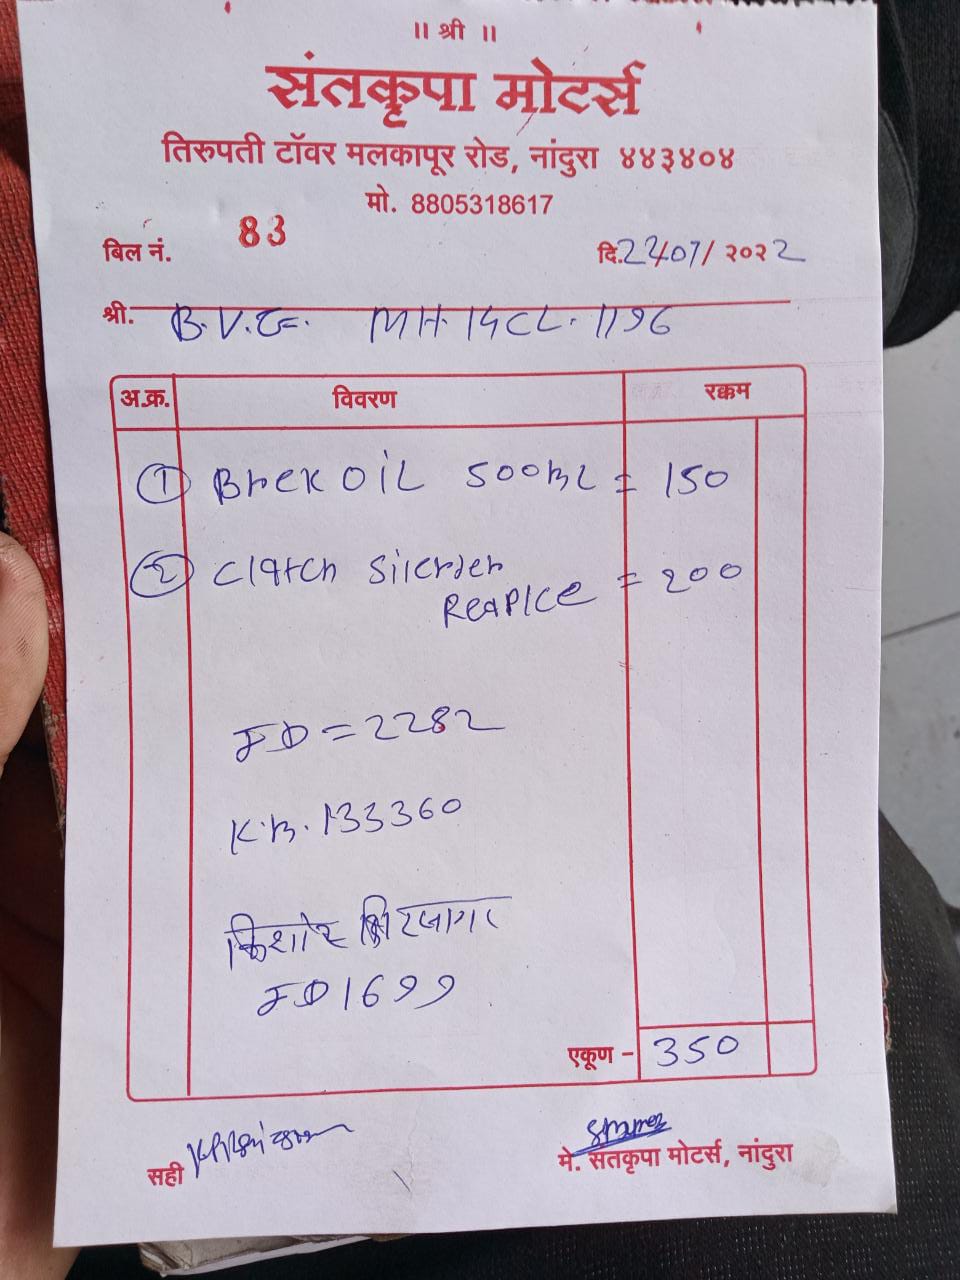 ॥ श्री ॥
संतकृपा मोटर्स
तिरुपती टॉवर मलकापूर रोड, नांदुरा ४४३४०४
मो. 8805318617
बिल नं. 83 दि. 22/07/२०२2
श्री. B.V.G. MH.14CL.1196
अ.क्र. विवरण रक्कम
① Brek OIL 500ML = 150
② Clatch Silender
Reaplce = 200
ID = 2282
K.M. 133360
किशोर क्षिरसागर
ID 1699
एकूण - 350
सही
मे. संतकृपा मोटर्स, नांदुरा